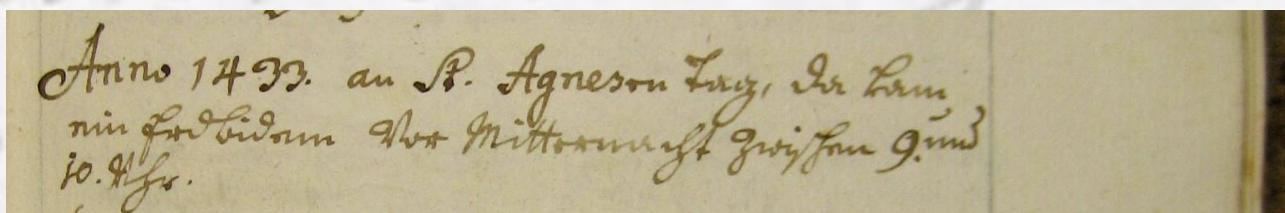 Anno 1433. an St. Agnesen tag, da kam
ein Erdbidem Vor Mitternacht zwischen 9. und
10. Uhr.